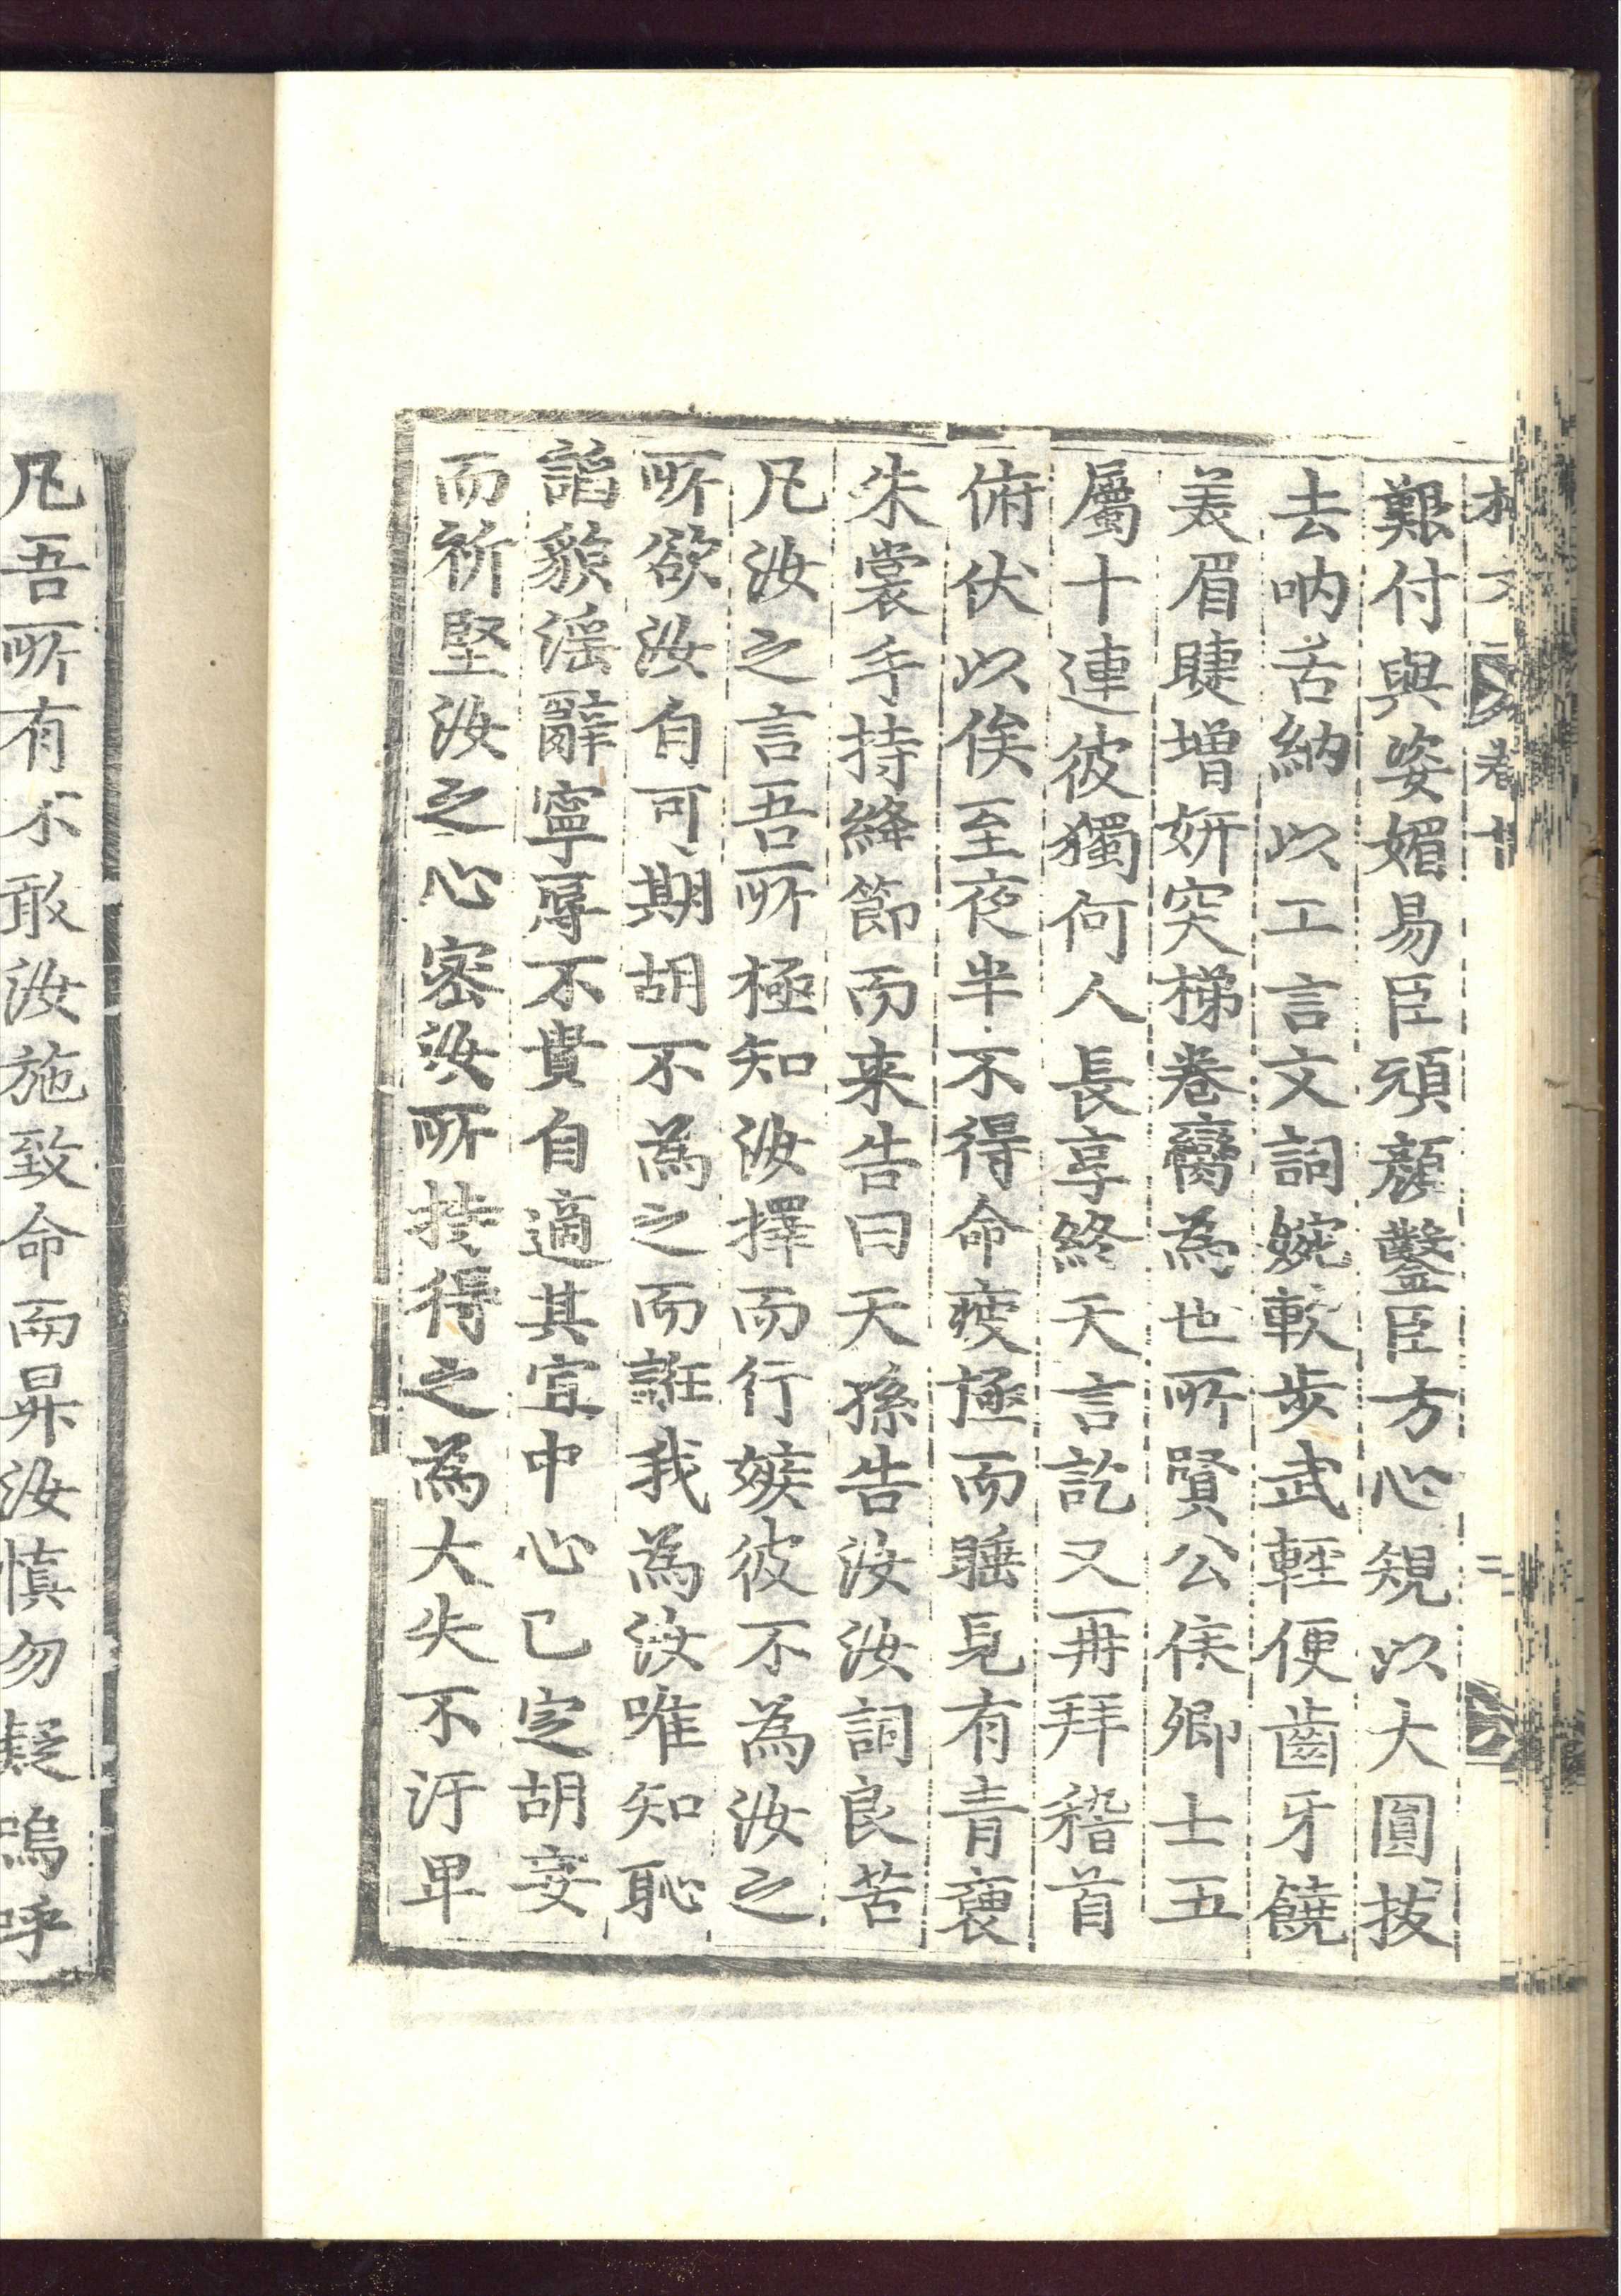 艱付與姿媚易臣頑顏鑿臣方心規以大圓拔
去吶舌納以工言文詞婉軟步武輕便齒牙饒
美眉睫增妍突梯卷臠為也所賢公侯卿士五
屬十連彼獨何人長享終天言訖又再拜稽首
俯伏以俟至夜半不得命疲極而睡見有青褏
朱裳手持絳節而来告曰天孫告汝汝詞良苦
凡汝之言吾所極知汝擇而行嫉彼不為汝之
所欲汝自可期胡不為之而誑我為汝唯知恥
諂貌淫辭寧辱不貴自適其宜中心已定胡妄
而祈堅汝之心密汝所持得之為大失不汙卑
凡吾所有不敢汝施致命而昇汝慎勿疑嗚呼